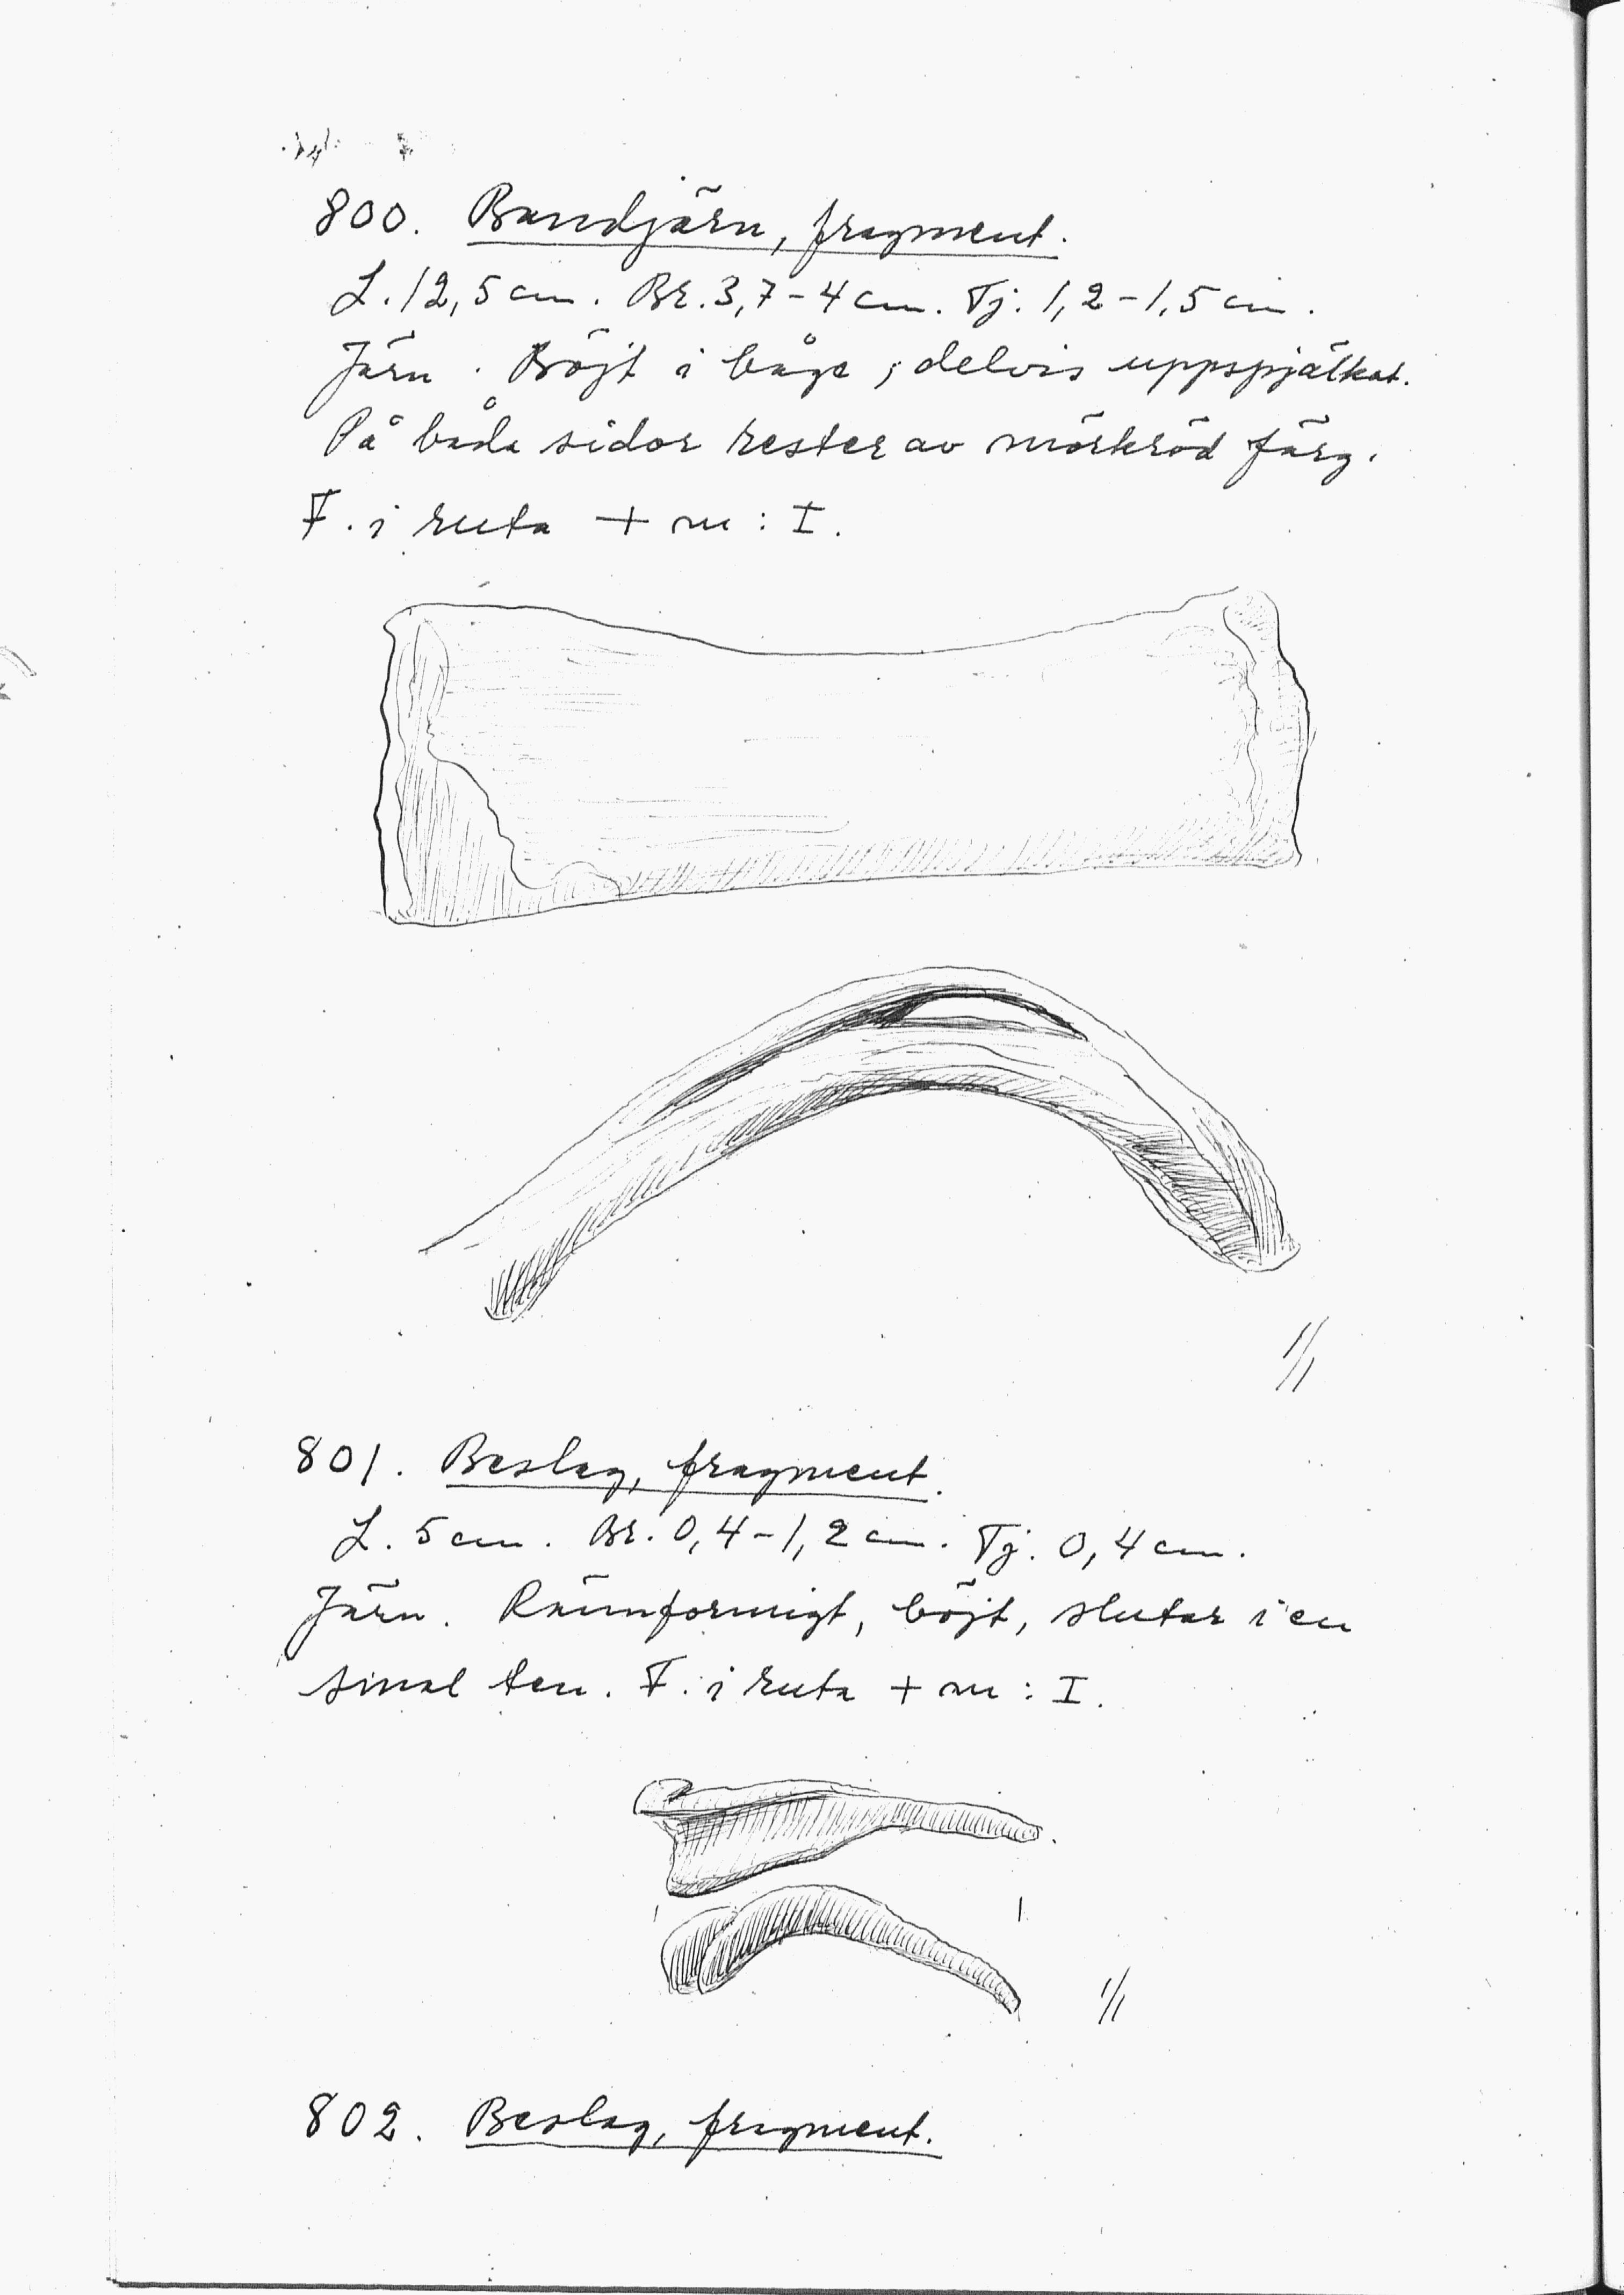 800. Bandjärn, fragment.
L. 12,5 cm. Br. 3,7-4 cm. Tj. 1,2-1,5 cm.
Järn. Böjt i båge, delvis uppspjälkat.
På båda sidor rester av mörkröd färg.
F. i ruta + m : I.
1/1
801. Beslag, fragment.
L. 5 cm. Br. 0,4-1,2 cm. Tj. 0,4 cm.
Järn. Rämformigt, böjt, slutar i en
smal ten. F. i ruta + m : I.
1/1
802. Beslag, fragment.